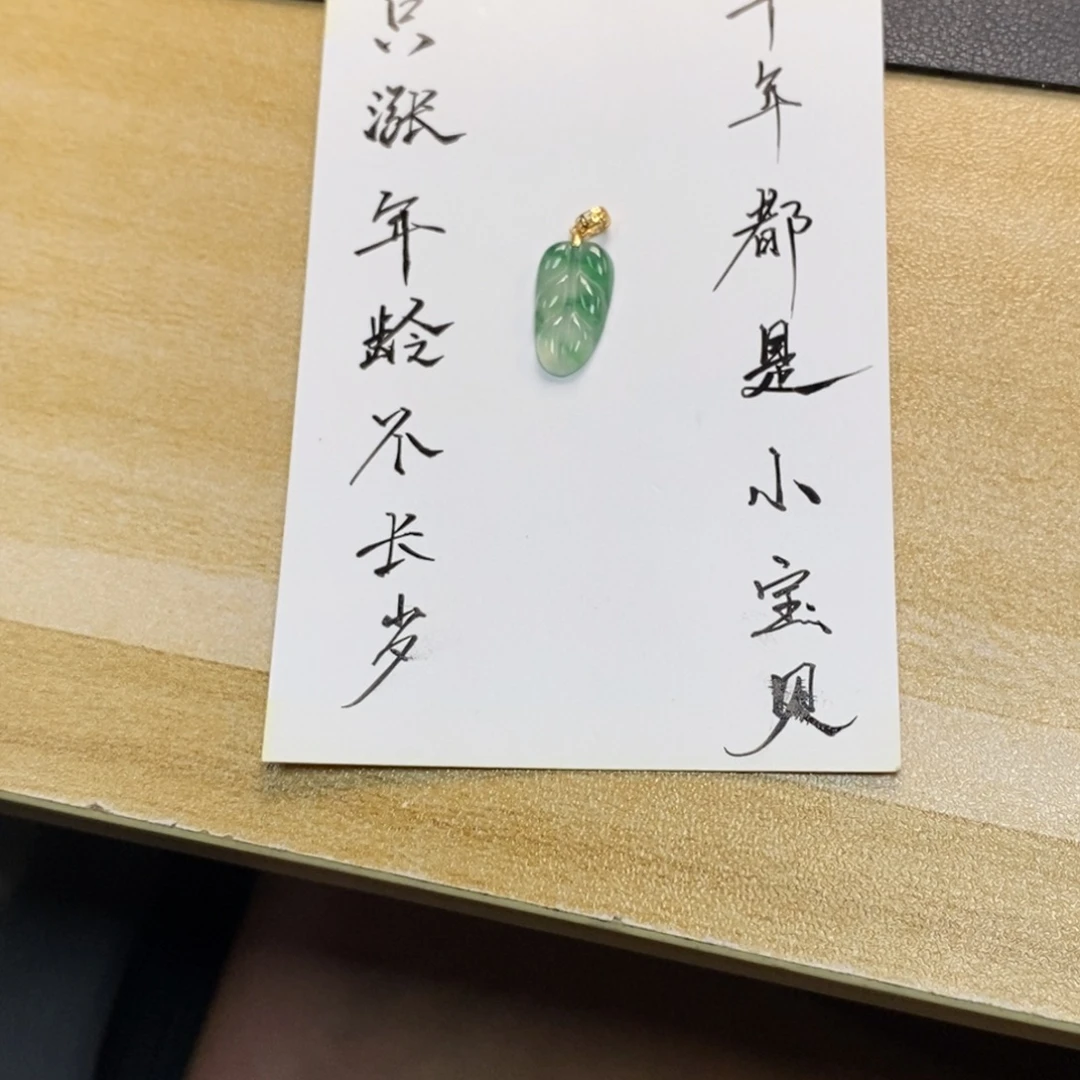 年都是小宝贝
只涨年龄不长岁